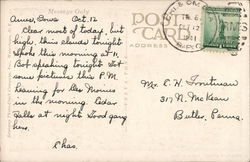 Message Only
Ames, Iowa Oct. 12
Clear most of today, but
high, thin clouds tonight
Spoke this morning at 11,
Bob speaking tonight. Got
some pictures this P.M.
Leaving for Des Moines
in the morning. Cedar
Falls at night. Good gang
here.
Chas.
POST
CARD
ADDRESS
OCT 12
1941
Mr. E. H. Troutman
317 N. McKean
Butler, Penna.